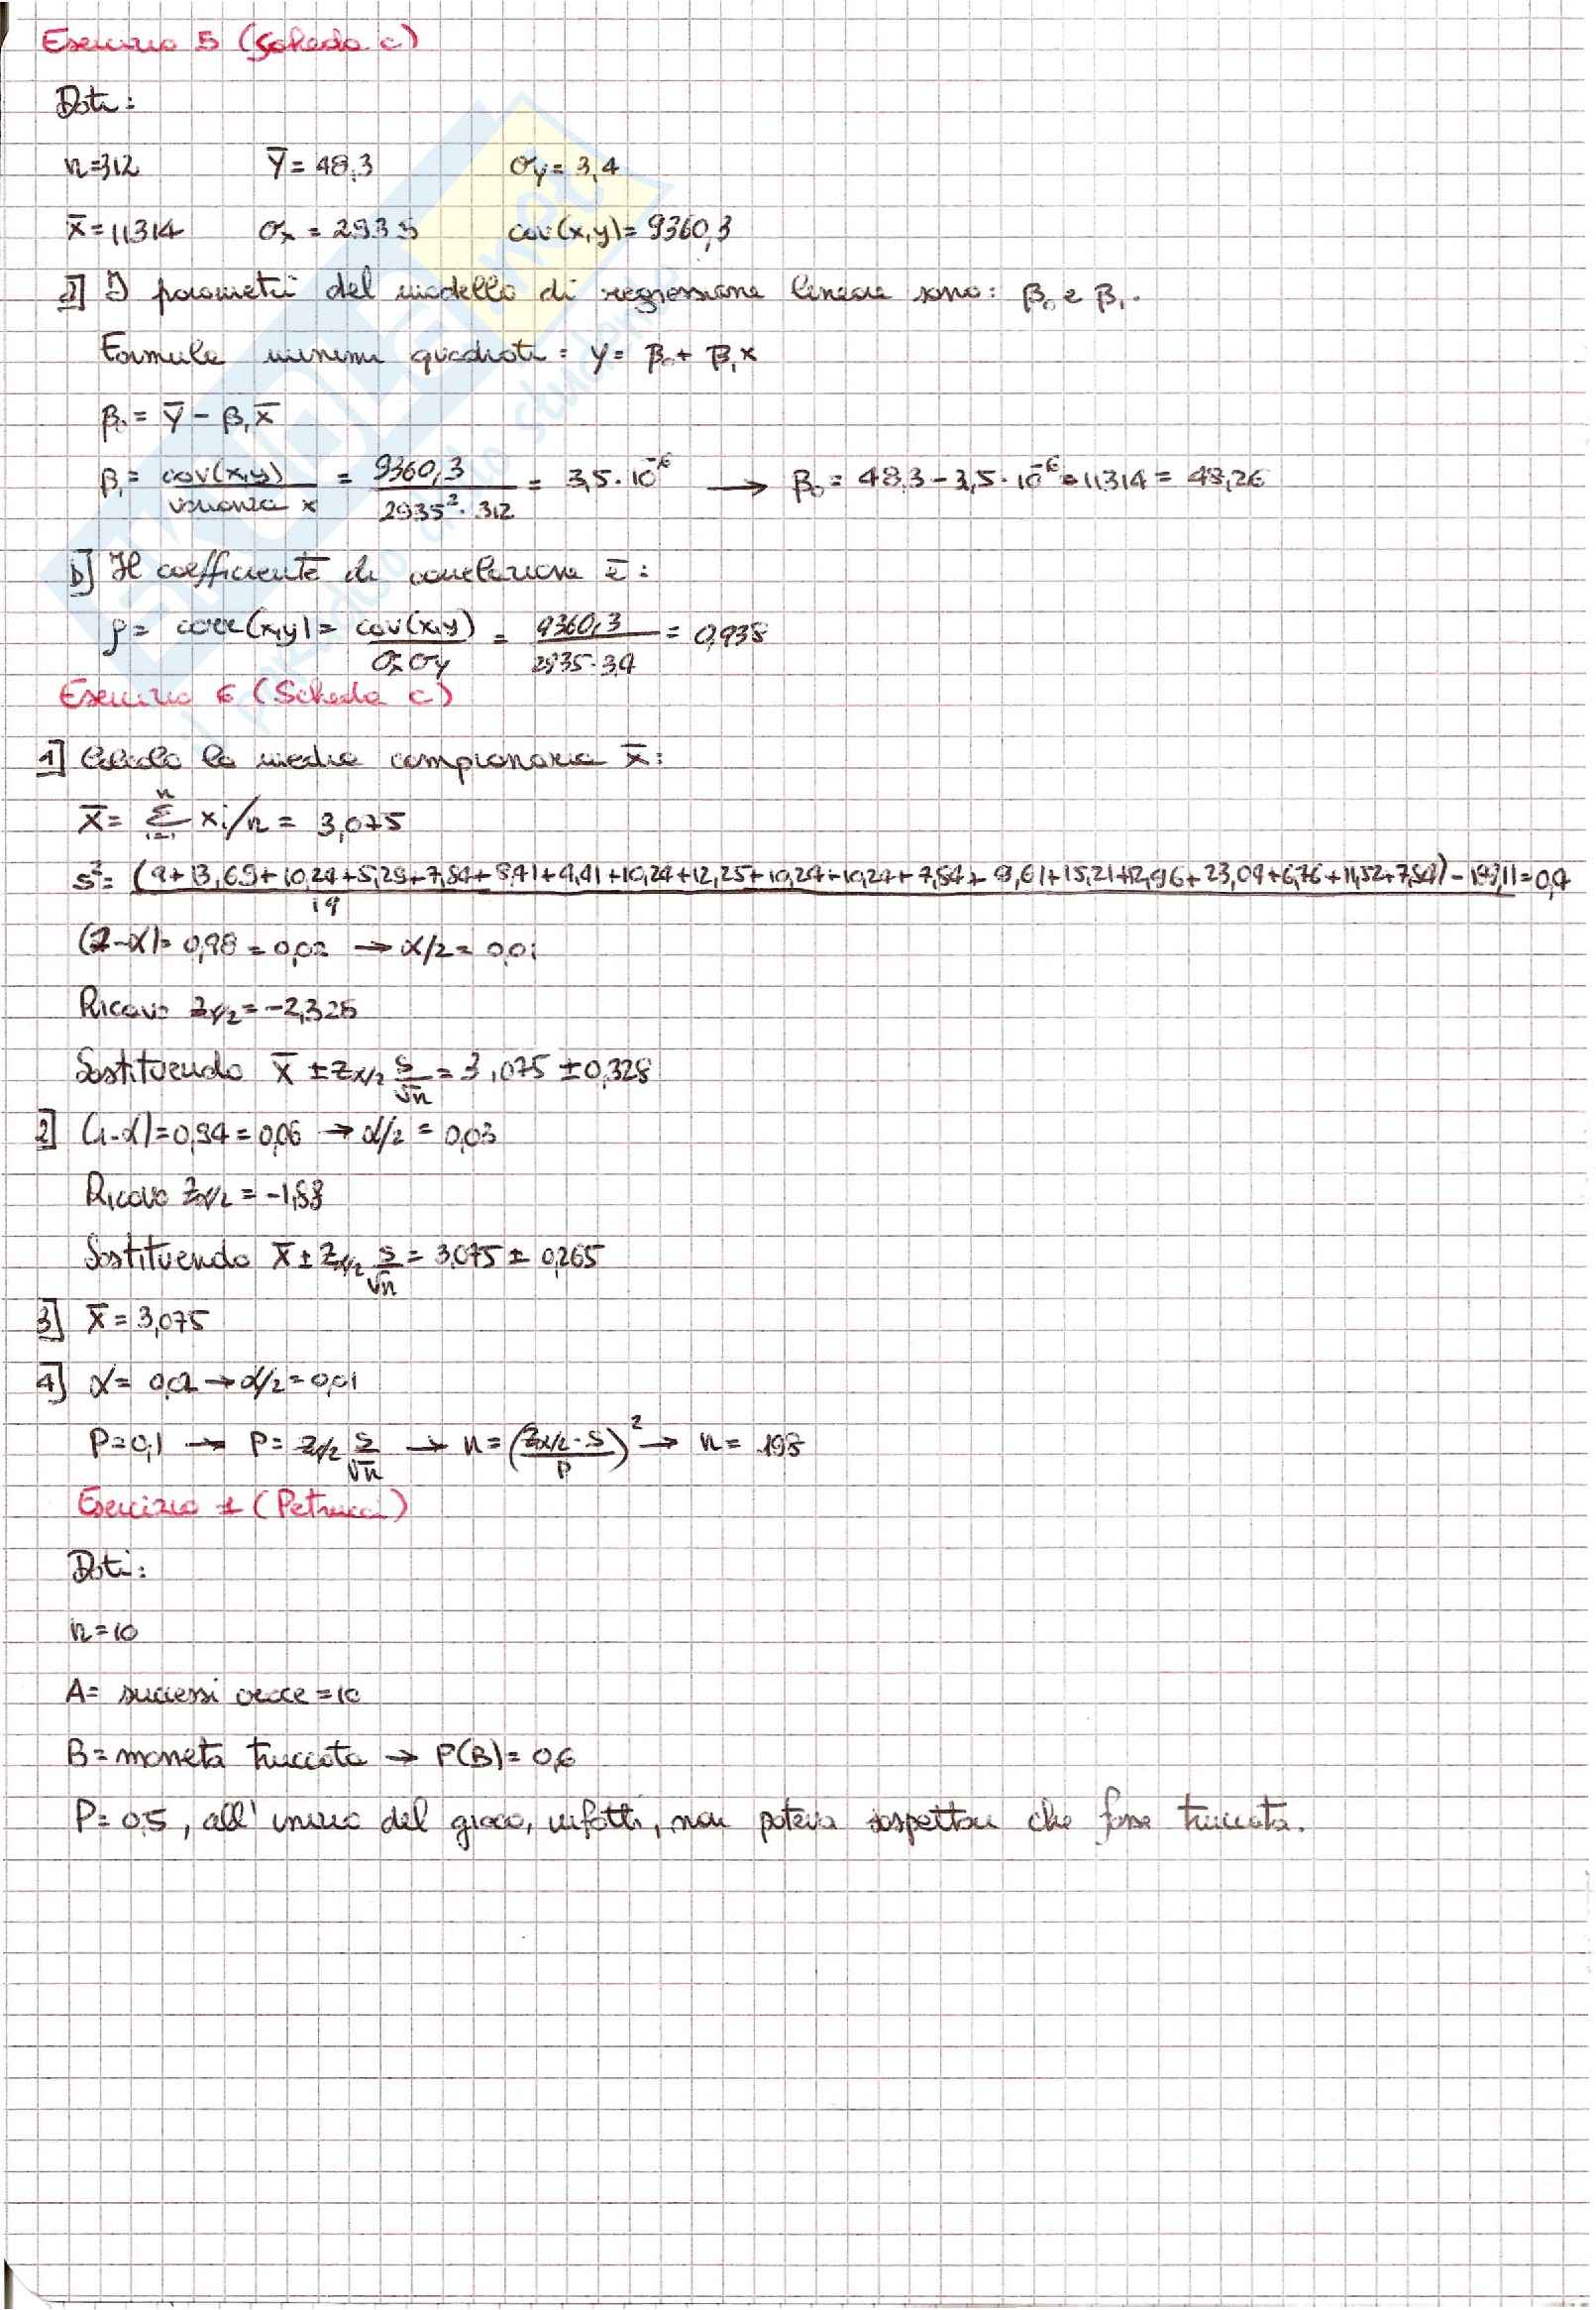 Esercizio 5 (Scheda c)
Dati:
n=312 Y̅=48,3 σy=3,4
x̅=11314 σx=2935 cov(x,y)=9360,3
a] I parametri del modello di regressione lineare sono: β₀ e β₁.
Formula minimi quadrati: y= β₀+ β₁x
β₀= Y̅ - β₁x̅
β₁= cov(x,y)/varianza x = 9360,3/2935²·312 = 3,5·10⁻⁶ → β₀= 48,3-3,5·10⁻⁶·11314= 48,26
b] Il coefficiente di correlazione è:
ρ= corr(x,y)= cov(x,y)/σxσy = 9360,3/2935·3,4 = 0,938
Esercizio 6 (Scheda c)
1] Calcolo la media campionaria x̅:
x̅= Σⁿᵢ₌₁ xi/n= 3,075
s²= (9+13,69+10,24+5,29+7,84+8,41+4,41+10,24+12,25+10,24+10,24+7,84+9,61+15,21+12,96+23,04+6,76+11,52+7,84)-189,11/19=0,4
(1-α)=0,98=0,02 → α/2=0,01
Ricavo zα/2=-2,325
Sostituendo x̅ ± zα/2 s/√n = 3,075 ± 0,328
2] (1-α)=0,94=0,06 → α/2= 0,03
Ricavo zα/2=-1,88
Sostituendo x̅ ± zα/2 s/√n = 3,075 ± 0,265
3] x̅=3,075
4] α= 0,02→α/2=0,01
P=0,1 → P= zα/2 s/√n → n=(zα/2·s/P)² → n= 198
Esercizio 1 (Petrucci)
Dati:
n=10
A= successi croce=10
B= moneta truccata → P(B)= 0,6
P= 0,5, all'inizio del gioco, infatti, non poteva sospettare che fosse truccata.